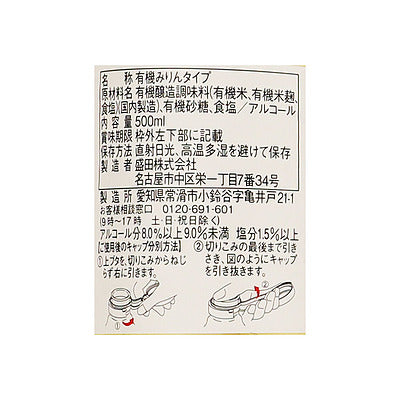 名 称 有機みりんタイプ
原材料名 有機醸造調味料(有機米、有機米麹、
食塩)(国内製造)、有機砂糖、食塩／アルコール
内 容 量 500ml
賞味期限 枠外左下部に記載
保存方法 直射日光、高温多湿を避けて保存
製 造 者 盛田株式会社
名古屋市中区栄一丁目7番34号
製 造 所 愛知県常滑市小鈴谷字亀井戸21-1
お客様相談窓口 0120-691-601
(9時〜17時 土・日・祝日除く)
アルコール分8.0%以上9.0%未満 塩分1.5%以上
[ご使用後のキャップ分別方法]
①上ブタを、切りこみからねじらず右に引きます。
②切りこみの最後まで引きさき、図のようにキャップを引き抜きます。
①
②